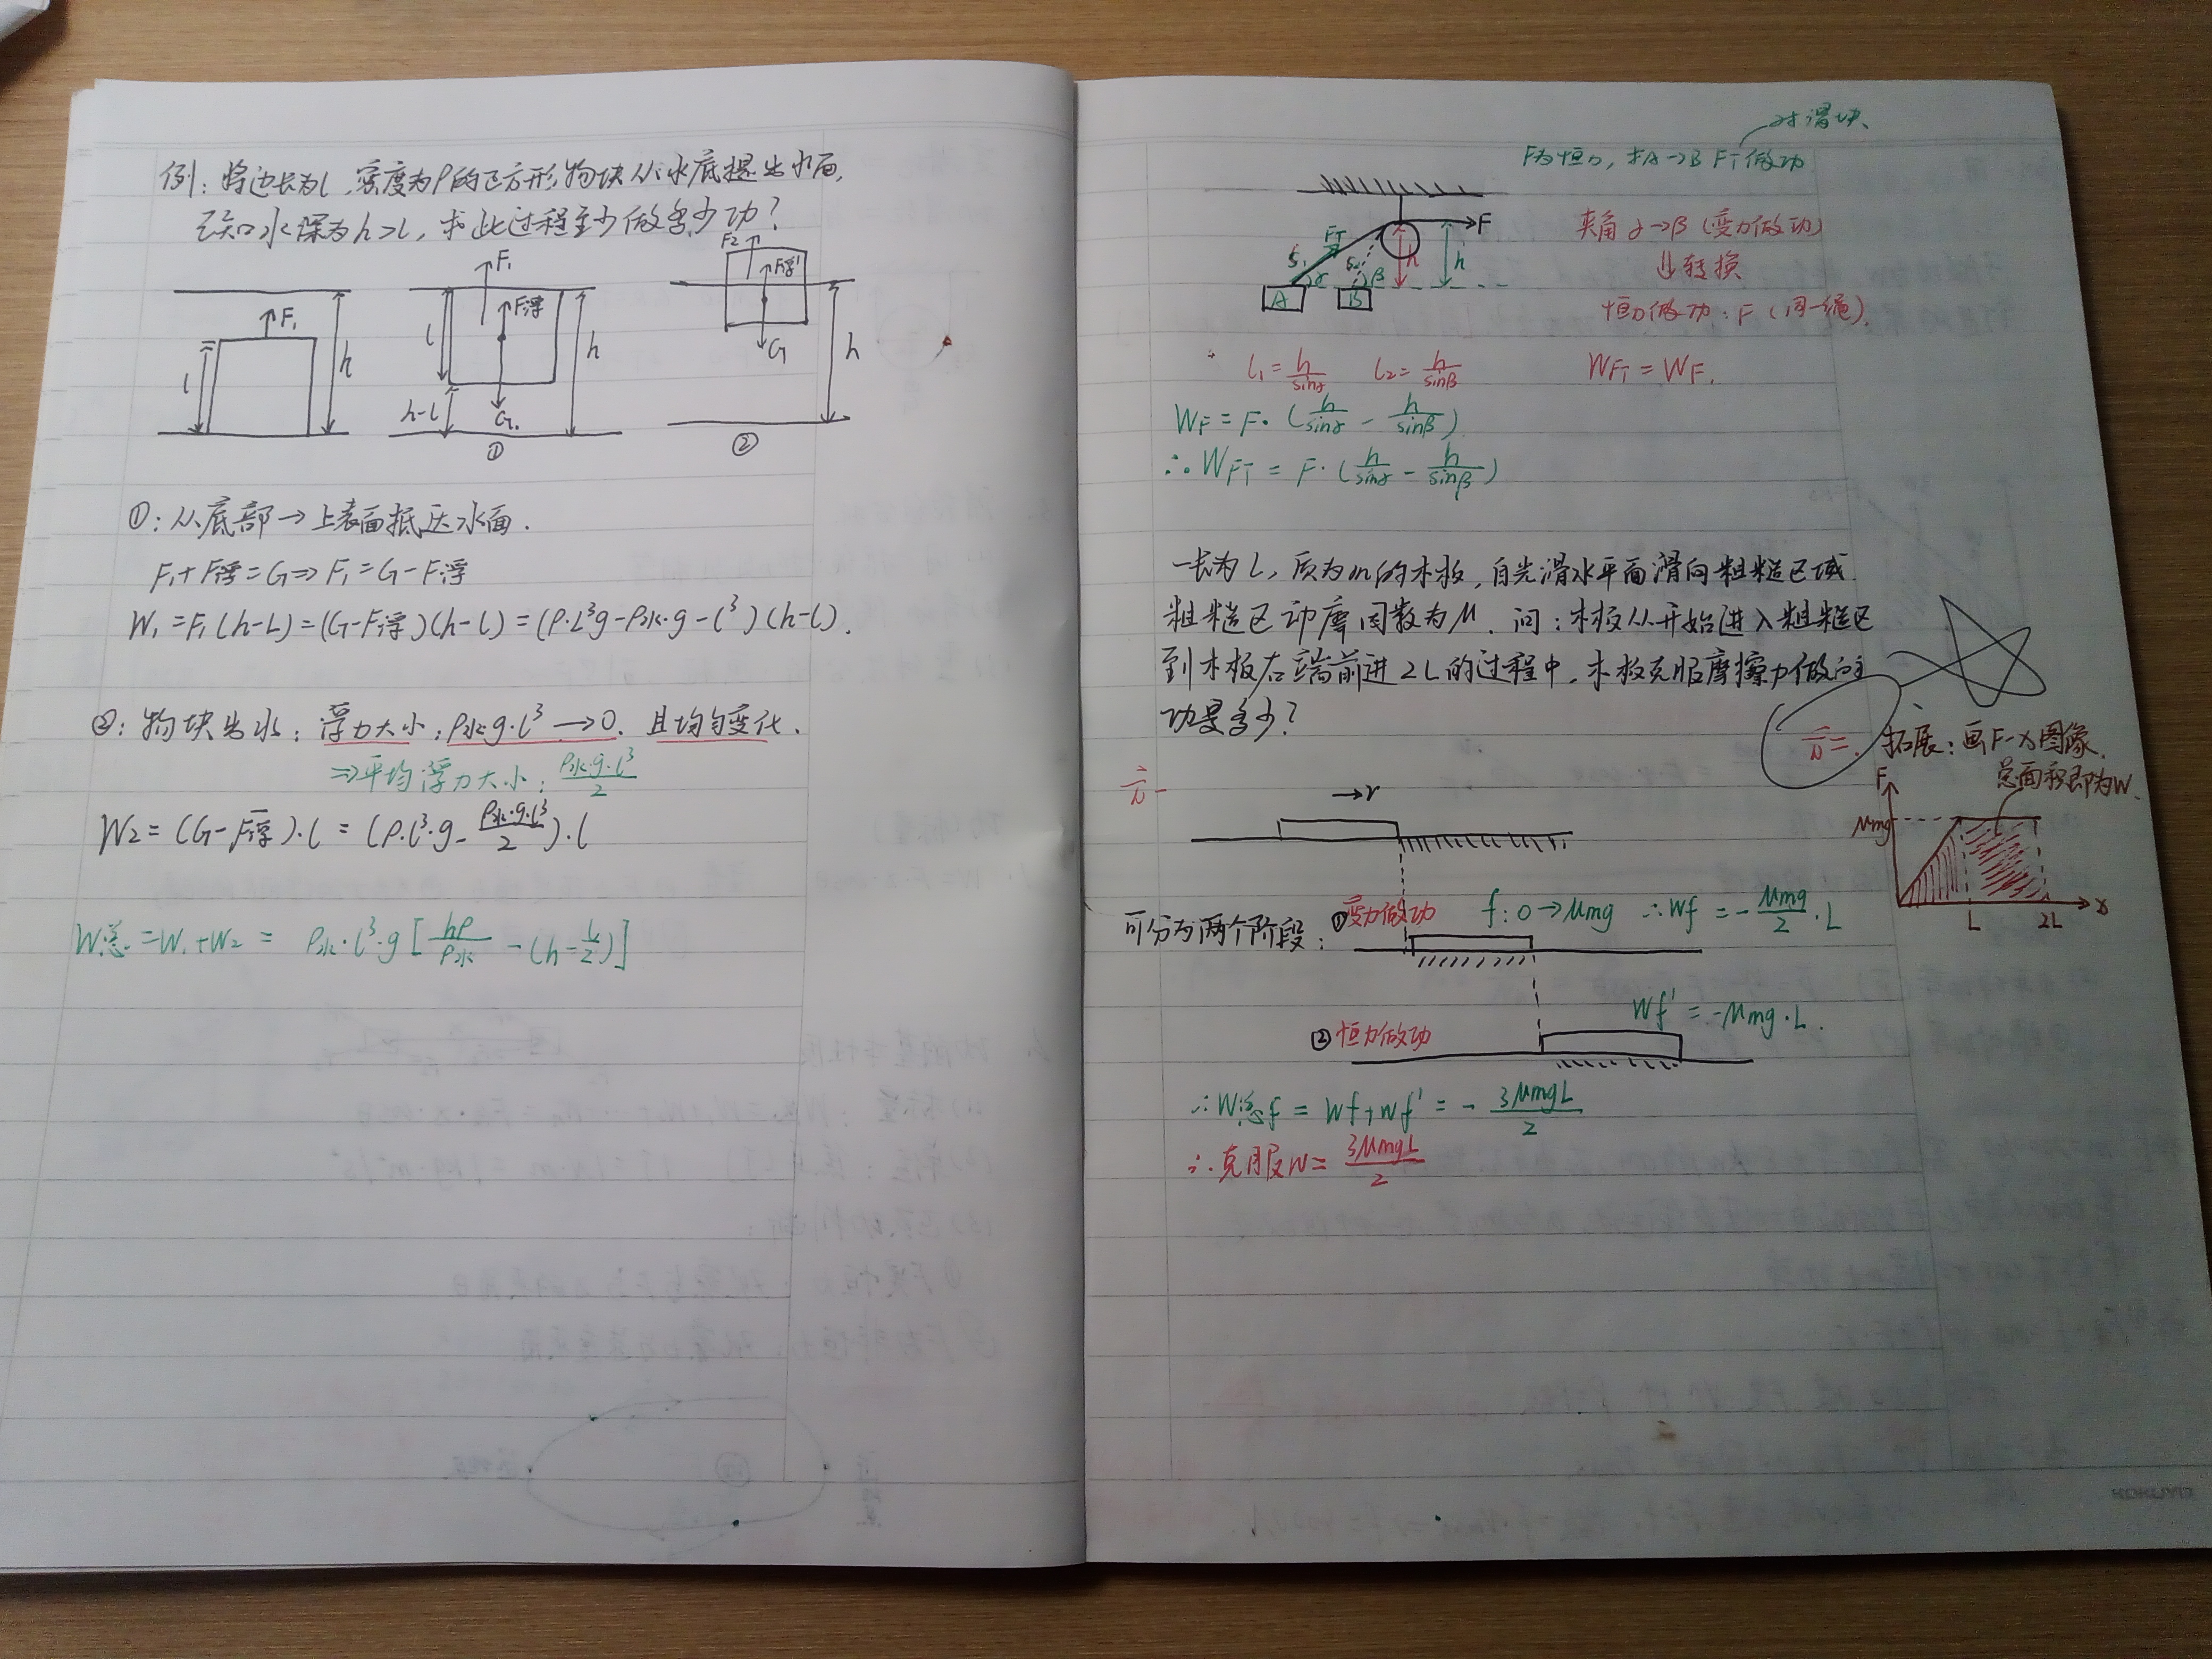 例：将边长为l，密度为ρ的正方形物块从水底提出水面，
已知水深为h>l，求此过程至少做多少功？
F₁
l
h
F₁
F浮
l
h
h-l
G
①
F₂
F浮'
G
h
②
①：从底部→上表面抵达水面．
F₁+F浮=G⇒F₁=G-F浮
W₁=F₁(h-L)=(G-F浮)(h-l)=(ρ·L³g-ρ水·g-l³)(h-l)．
②：物块出水：浮力大小：ρ水g·l³→0．且均匀变化．
⇒平均浮力大小：ρ水·g·l³/2
W2=(G-F浮)·l=(ρ·l³·g-ρ水·g·l³/2)·l
W总=W₁+W₂= ρ水·l³·g[hρ/ρ水-(h-l/2)]
对滑块
F为恒力，求A→B FT做功
F
FT
S₁
S₂
h
h
α
β
A
B
夹角α→β（变力做功）
⇓转换
恒力做功：F（同一绳）
l₁=h/sinα l₂=h/sinβ WFT=WF．
WF=F·(h/sinα-h/sinβ)
∴WFT=F·(h/sinα-h/sinβ)
一长为L，质为m的木板，自光滑水平面滑向粗糙区域
粗糙区动摩因数为μ．问：木板从开始进入粗糙区
到木板右端前进2L的过程中，木板克服摩擦力做的
功是多少？
拓展：画F-x图像．
总面积即为W．
F
μmg
L
2L
x
→v
可分为两个阶段：
①变力做功 f:0→μmg ∴Wf=-μmg/2·L
②恒力做功 Wf'=-μmg·L．
∴W总f=Wf+Wf'=-3μmgL/2
∴克服W=3μmgL/2